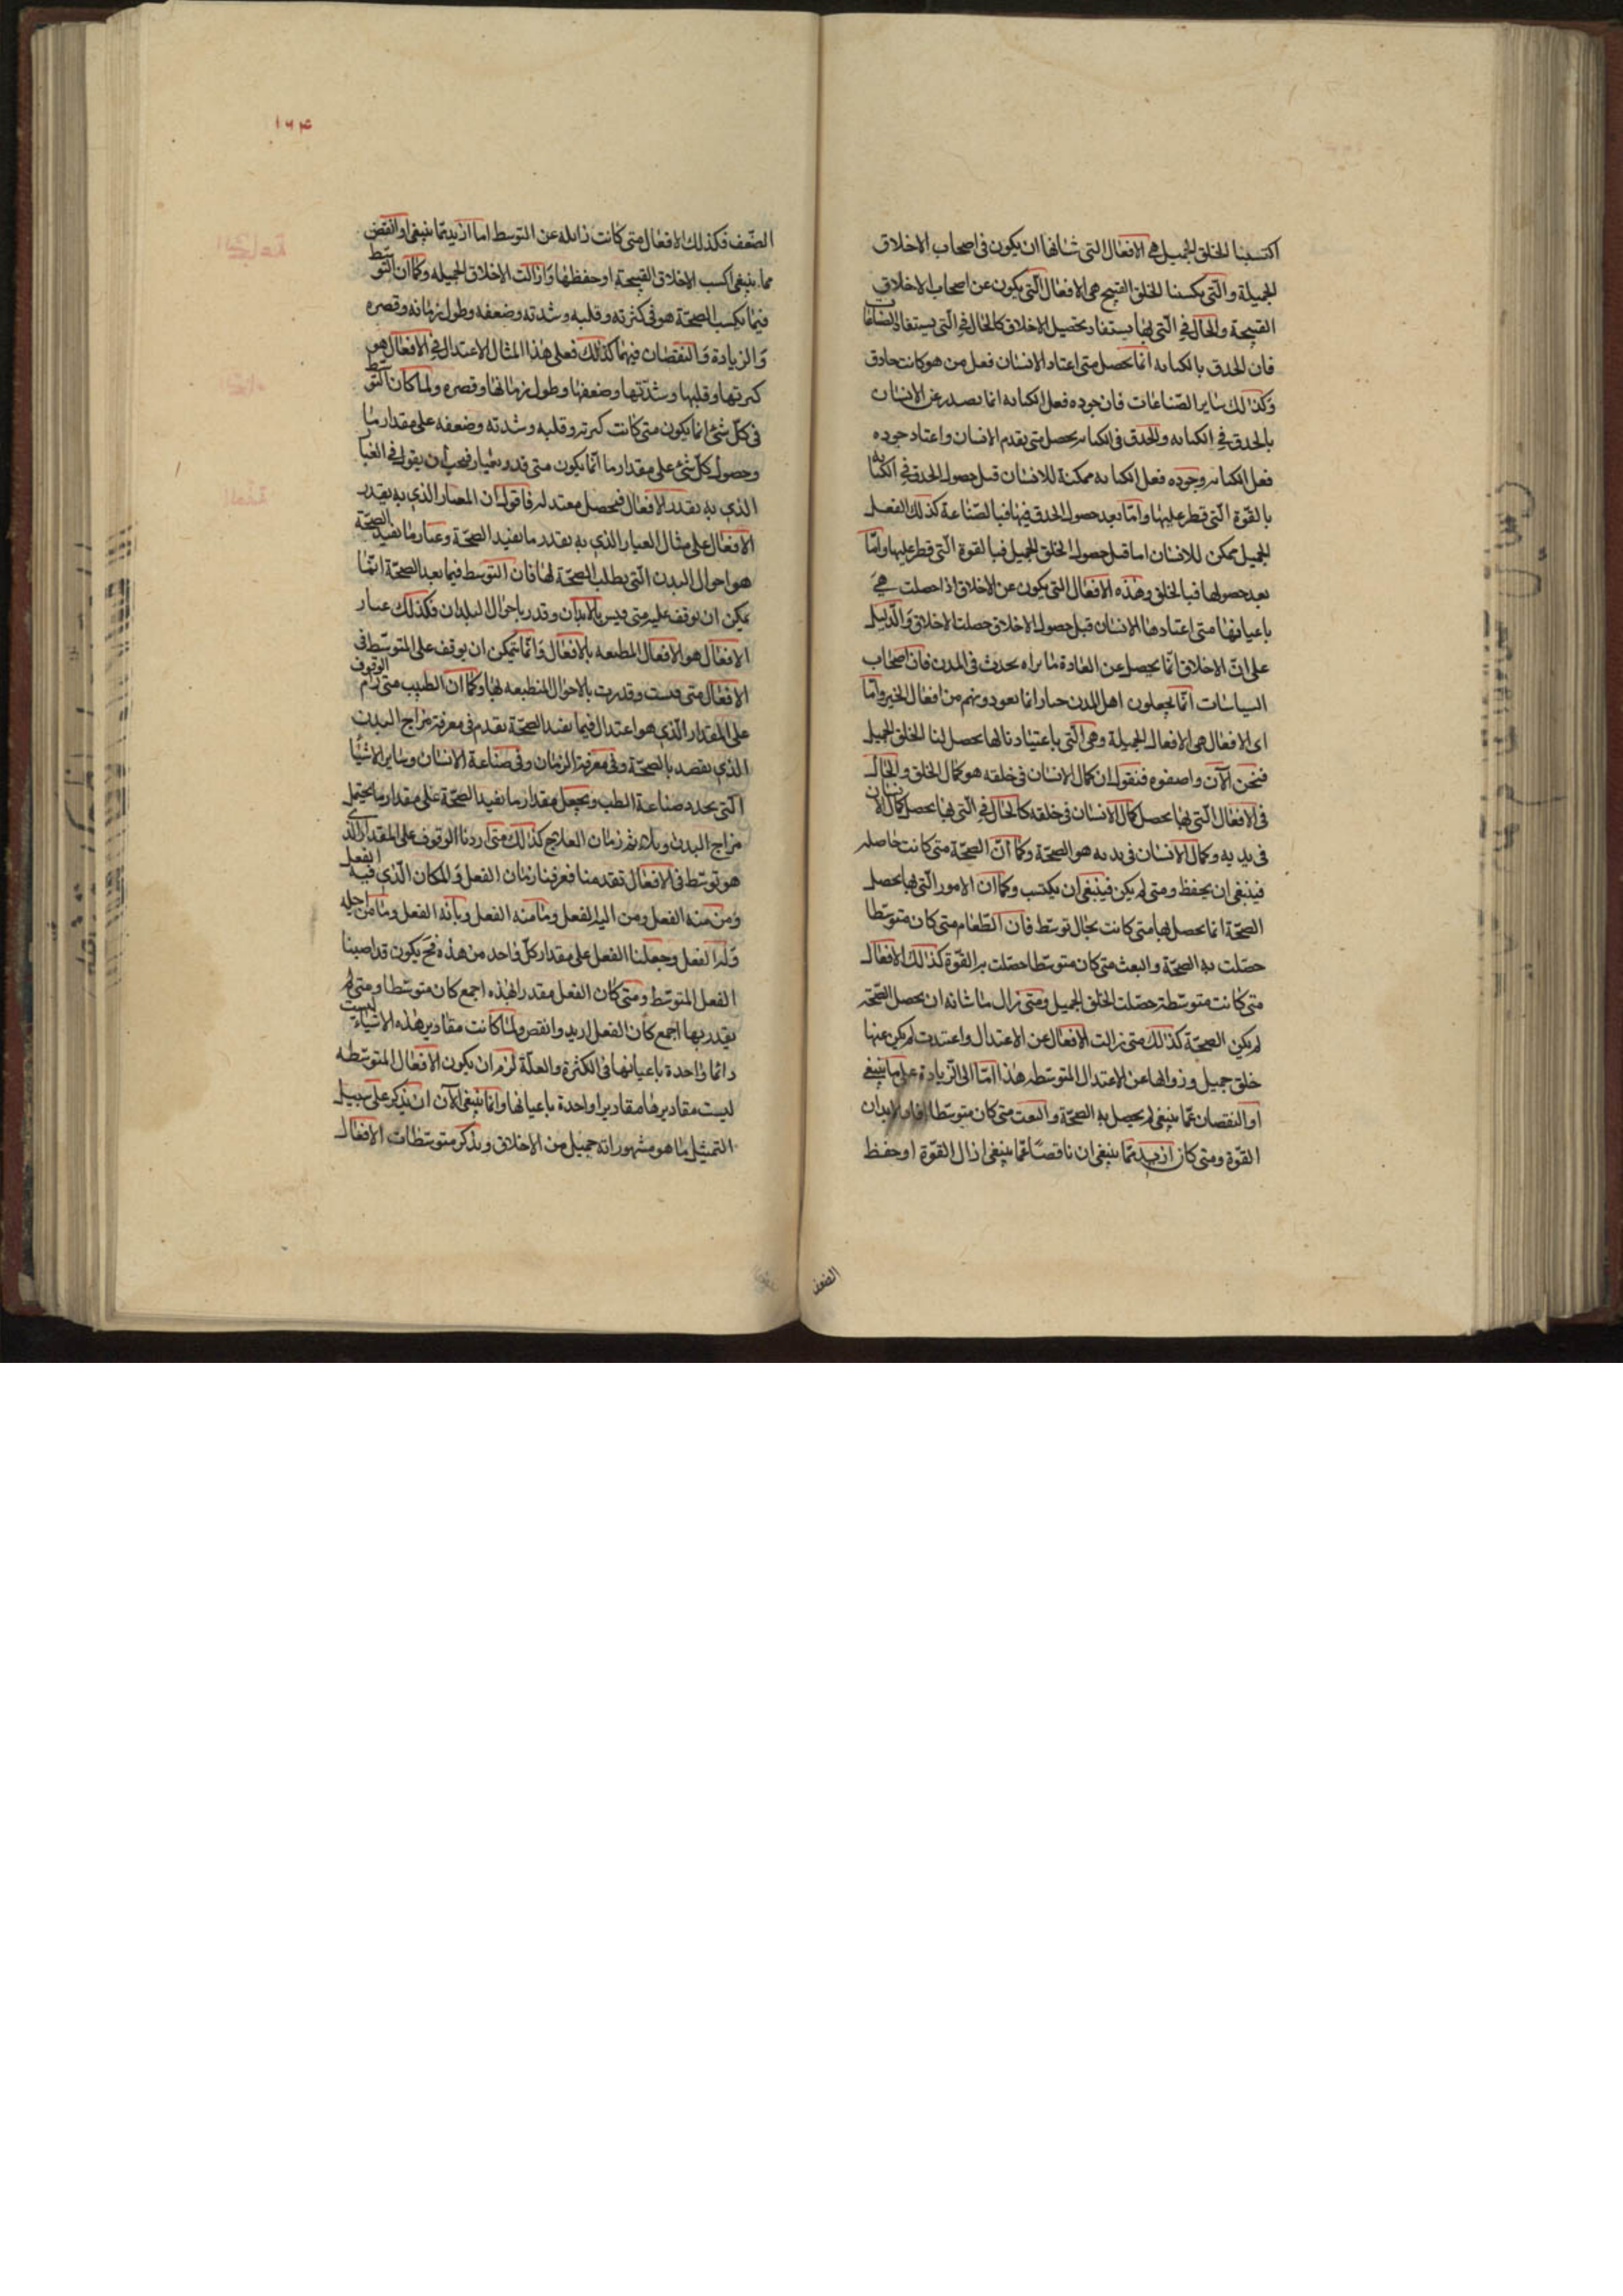 اكتسبنا الخلق الجميل هي الافعال التي شانها ان يكون في اصحاب الاخلاق
الجميلة والتي يكسبنا الخلق القبيح هي الافعال التي يكون عن اصحاب الاخلاق
القبيحة والحال في التي بها يستفاد تحصيل الاخلاق كالحال في التي يستفاد بها الصناعات
فان الحدق بالكتابه انما تحصل متى اعتاد الانسان فعل من هو كاتب حادق
وكذلك ساير الصناعات فان جوده فعل الكتابه انما يصدر عن الانسان
بالحدق في الكتابه والحدق في الكتابه يحصل متى يقدم الانسان واعتاد جوده
فعل الكتابه وجوده فعل الكتابه ممكنة للانسان قبل حصول الحدق في الكتابه
بالقوة التي فطر عليها واما بعد حصول الحدق فيها فبالصناعة كذلك الفعل
الجميل ممكن للانسان اما قبل حصول الخلق الجميل فبالقوة التي فطر عليها واما
بعد حصولها فبالخلق وهذه الافعال التي يكون عن الاخلاق اذا حصلت هي
باعيانها متى اعتادها الانسان قبل حصول الاخلاق حصلت الاخلاق والدليل
على ان الاخلاق انما يحصل عن العادة ما يراه يحدث في المدن فان اصحاب
السياسات انما يجعلون اهل المدن خيارا بما يعودونهم من افعال الخير واما
اي الافعال هي الافعال الجميلة وهي التي باعتيادنا لها يحصل لنا الخلق الجميل
فنحن الآن واصفوه فنقول ان كمال الانسان في خلقه هو كمال الخلق والحال
في الافعال التي بها يحصل كمال الانسان في خلقه كالحال في التي بها يحصل كمال الانسان
في بدنه وكمال الانسان في بدنه هو الصحة وكما ان الصحة متى كانت حاصله
فينبغي ان يحفظ ومتى لم يكن فينبغي ان يكتسب وكما ان الامور التي بها يحصل
الصحة انما يحصل بها متى كانت بحال توسط فان الطعام متى كان متوسطا
حصلت به الصحة والبعث متى كان متوسطا حصلت به القوة كذلك الافعال
متى كانت متوسطة حصلت الخلق الجميل ومتى زال ما شانه ان يحصل الصحة
لم يكن الصحة كذلك متى زالت الافعال عن الاعتدال واعتيدت لم يكن عنها
خلق جميل وزوالها عن الاعتدال المتوسط هذا اما الى الزيادة على ما ينبغي
او النقصان عما ينبغي لم يحصل به الصحة والبعث متى كان متوسطا افاد الابدان
القوة ومتى كان ازيد مما ينبغي ان ناقصا عما ينبغي ازال القوة او حفظ
الضعف
١٦٤
الضعف فكذلك الافعال متى كانت زايله عن التوسط اما ازيد مما ينبغي او انقص
مما ينبغي اكسب الاخلاق القبيحة او حفظها وازالت الاخلاق الجميله وكما ان التوسط
فيما يكسب الصحة هو في كثرته وقلته وشدته وضعفه وطول زمانه وقصره
والزيادة والنقصان فيهما كذلك فعلى هذا المثال الاعتدال في الافعال هو
كثرتها وقلتها وشدتها وضعفها وطول زمانها وقصره ولما كان التوسط
في كل شئ انما يكون متى كانت كثرته وقلته وشدته وضعفه على مقدار ما
وحصول كل شئ على مقدار ما انما يكون متى قدر بعيار فيجب ان يقول في العيار
الذي به يقدر الافعال فيحصل معتدله فاقول ان العيار الذي به يقدر
الافعال على مثال العيار الذي به يقدر ما يفيد الصحة وعيار ما يفيد الصحة
هو احوال البدن التي يطلب الصحة لها فان التوسط فيما بعد الصحة انما
يمكن ان يوقف عليه متى قيس بالابدان وقدر باحوال البلدان فكذلك عيار
الافعال هو الافعال المطيفه بالافعال وانما يتمكن ان يوقف على المتوسط في
الافعال متى قيست وقدرت بالاحوال المنطبعه بها وكما ان الطبيب متى رام الوقوف
على المقدار الذي هو اعتدال فيما يفيد الصحة تقدم في معرفة مزاج البدن
الذي يقصد بالصحة وفي معرفة الزمان وفي صناعة الانسان وساير الاشيا
التي تحدد صناعة الطب ويجعل مقدار ما يفيد الصحة على مقدار ما يحتمل
مزاج البدن ويلائم زمان العلاج كذلك متى اردنا الوقوف على المقدار الذي
هو توسط في الافعال تقدمنا فعرفنا زمان الفعل والمكان الذي فيه الفعل
ومن منه الفعل ومن اليه الفعل وما منه الفعل وبأنه الفعل وما من اجله
وله الفعل وجعلنا الفعل على مقدار كل واحد من هذه فح يكون قد اصبنا
الفعل المتوسط ومتى كان الفعل مقدرا بهذه اجمع كان متوسطا ومتى لم
يقدر بها اجمع كان الفعل ازيد وانقص ولما كانت مقادير هذه الاشياء ليست
دائما واحدة باعيانها في الكثرة والعلة لزم ان يكون الافعال المتوسطه
ليست مقاديرها مقاديرا واحدة باعيانها وانما ينبغي الآن ان نذكر على سبيل
التمثيل ما هو مشهور انه جميل من الاخلاق ويذكر متوسطات الافعال